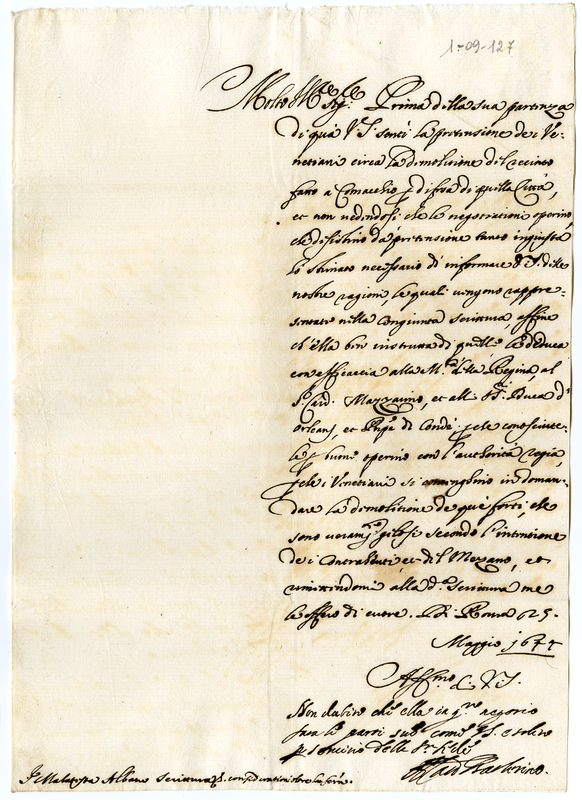 1-09-127
Molto Ill.re Sig.re Prima della sua partenza
di quà V.S. sentì la pretensione de i Ve-
netiani circa la demolitione del recinto
fatto a Comacchio p difesa di quella Città,
et non vedendosi che le negotiationi operino,
che desistino da pretensione tanto ingiusta
hò stimato necessario di informare V.S. delle
nostre ragioni, le quali vengono rappre-
sentate nella congiunta scrittura, affine
ch'ella ben instrutta di quelle le deduca
con efficacia alla M.tà della Regina, al
S.r Card. Mazzarino, et alli SS.ri Duca d'
Orleans, et Prnpe di Condè, p che conosciute-
le p buone operino con l'authorità regia,
che i Venetiani si contenghino in doman-
dare la demolitione de que' forti, che
sono veram.te gelosi secondo l'intentione
de i Contrahenti, et del Mezzano, et
rimettendomi alla d.a scrittura me
le offero di cuore. Di Roma
Maggio
Aff.mo
Non dubito che ella in q.to negotio
farà le parti sue come è solito
p servitio della